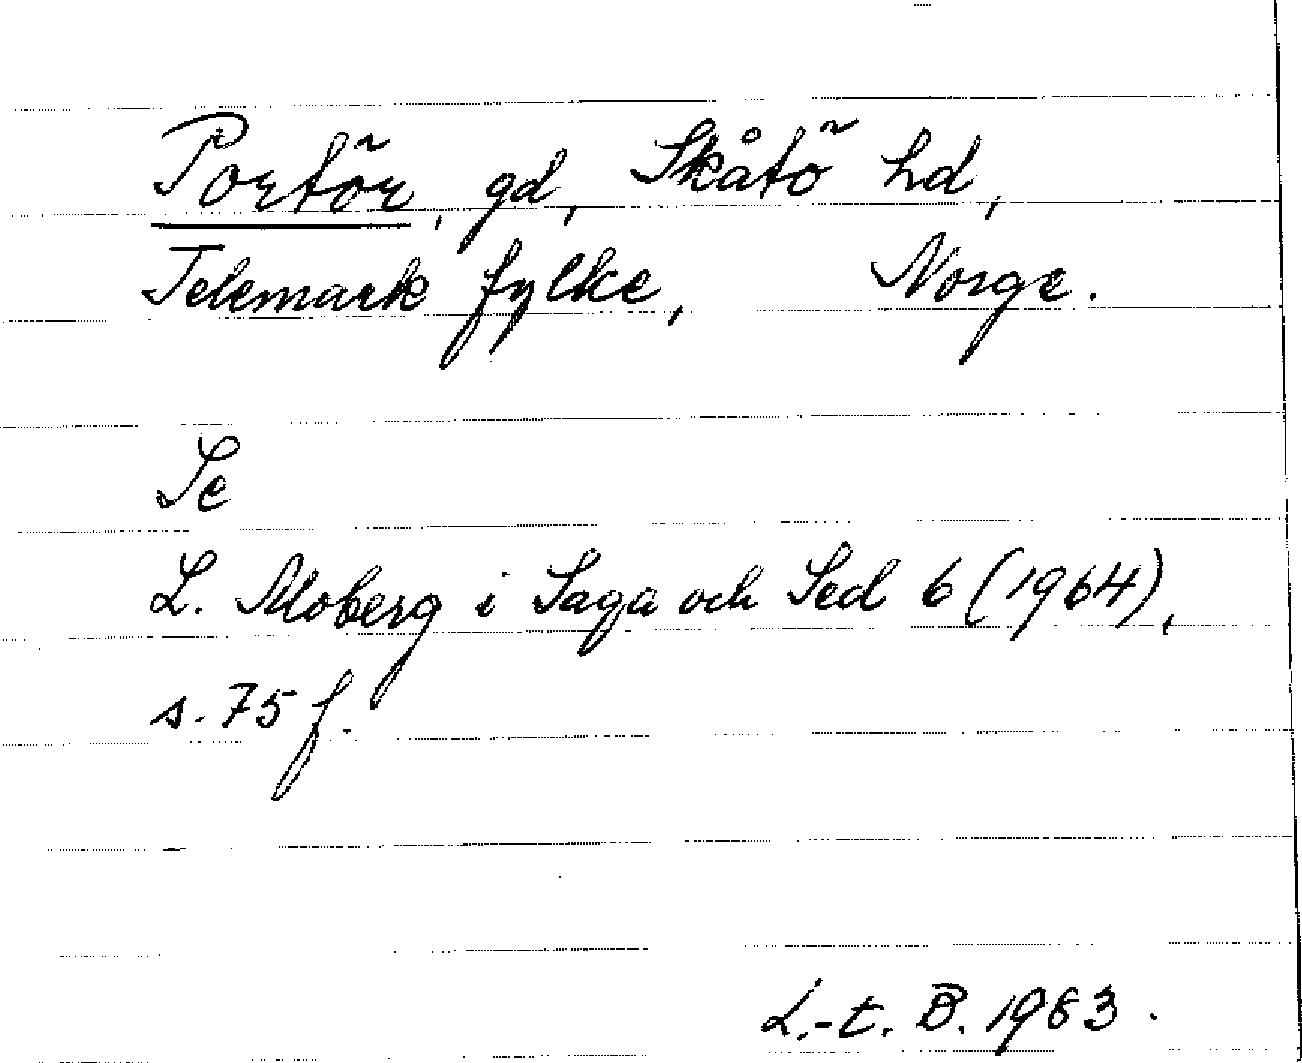 Portör, gd, Skåtö hd,
Telemark fylke, Norge.
Se
L. Moberg i Saga och Sed 6 (1964),
s. 75 f.
L.-t. B. 1983.